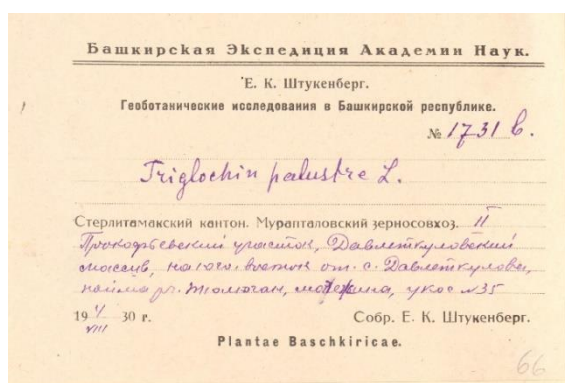 Башкирская Экспедиция Академии Наук.
Е. К. Штукенберг.
Геоботанические исследования в Башкирской республике.
№ 1731 б.
Triglochin palustre L.
Стерлитамакский кантон. Мурапталовский зерносовхоз. II
Прокофьевский участок, Давлеткуловский
массив, на юго-восток от с. Давлеткулова,
пойма рч. укос №35
19 1/VIII 30 г. Собр. Е. К. Штукенберг.
Plantae Baschkiricae.
66